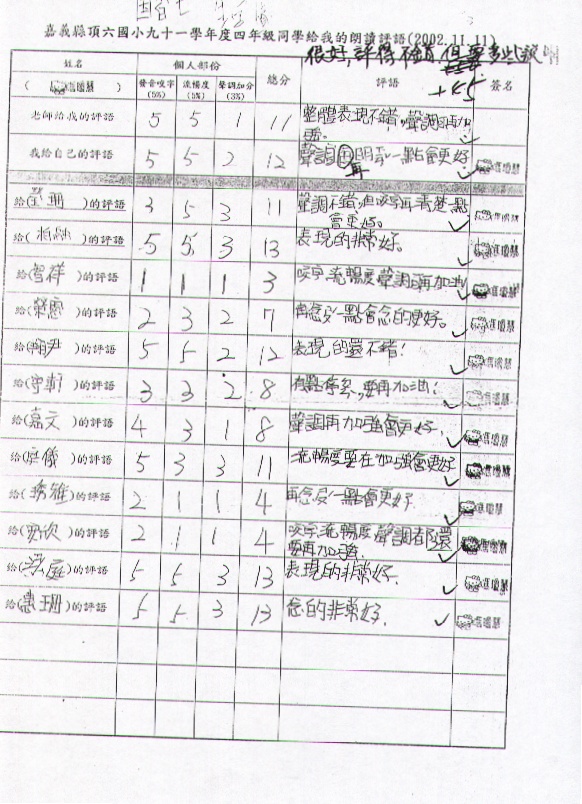 嘉義縣頂六國小九十一學年度四年級同學給我的朗讀評語(2002.11.11)
很好,評得不錯,但要多些說明
+45
姓名 個人部份 總分 評語 簽名
發音咬字(5%) 流暢度(5%) 聲調加分(3%)
老師給我的評語 5 5 1 11 整體表現不錯,聲調再加強。
我給自己的評語 5 5 2 12 聲調再明亮一點會更好
給( 珊 )的評語 3 5 3 11 聲調不錯,但咬字再清楚一點會更好。
給( )的評語 5 5 3 13 表現的非常好。
給(智祥 )的評語 1 1 1 3 咬字流暢度聲調再加油
給( )的評語 2 3 2 7 再念多一點會念的更好。
給(翰尹 )的評語 5 5 2 12 表現的還不錯!
給(守軒 )的評語 3 3 2 8 有點停頓,要再加油!
給(嘉文 )的評語 4 3 1 8 聲調再加強會更好.
給( 儀 )的評語 5 3 3 11 流暢度要在加強會更好
給(琇雅 )的評語 2 1 1 4 再念多一點會更好.
給( 欣 )的評語 2 1 1 4 咬字流暢度聲調都還要再加強.
給( 庭 )的評語 5 5 3 13 表現的非常好.
給(惠珊 )的評語 5 5 3 13 念的非常好.